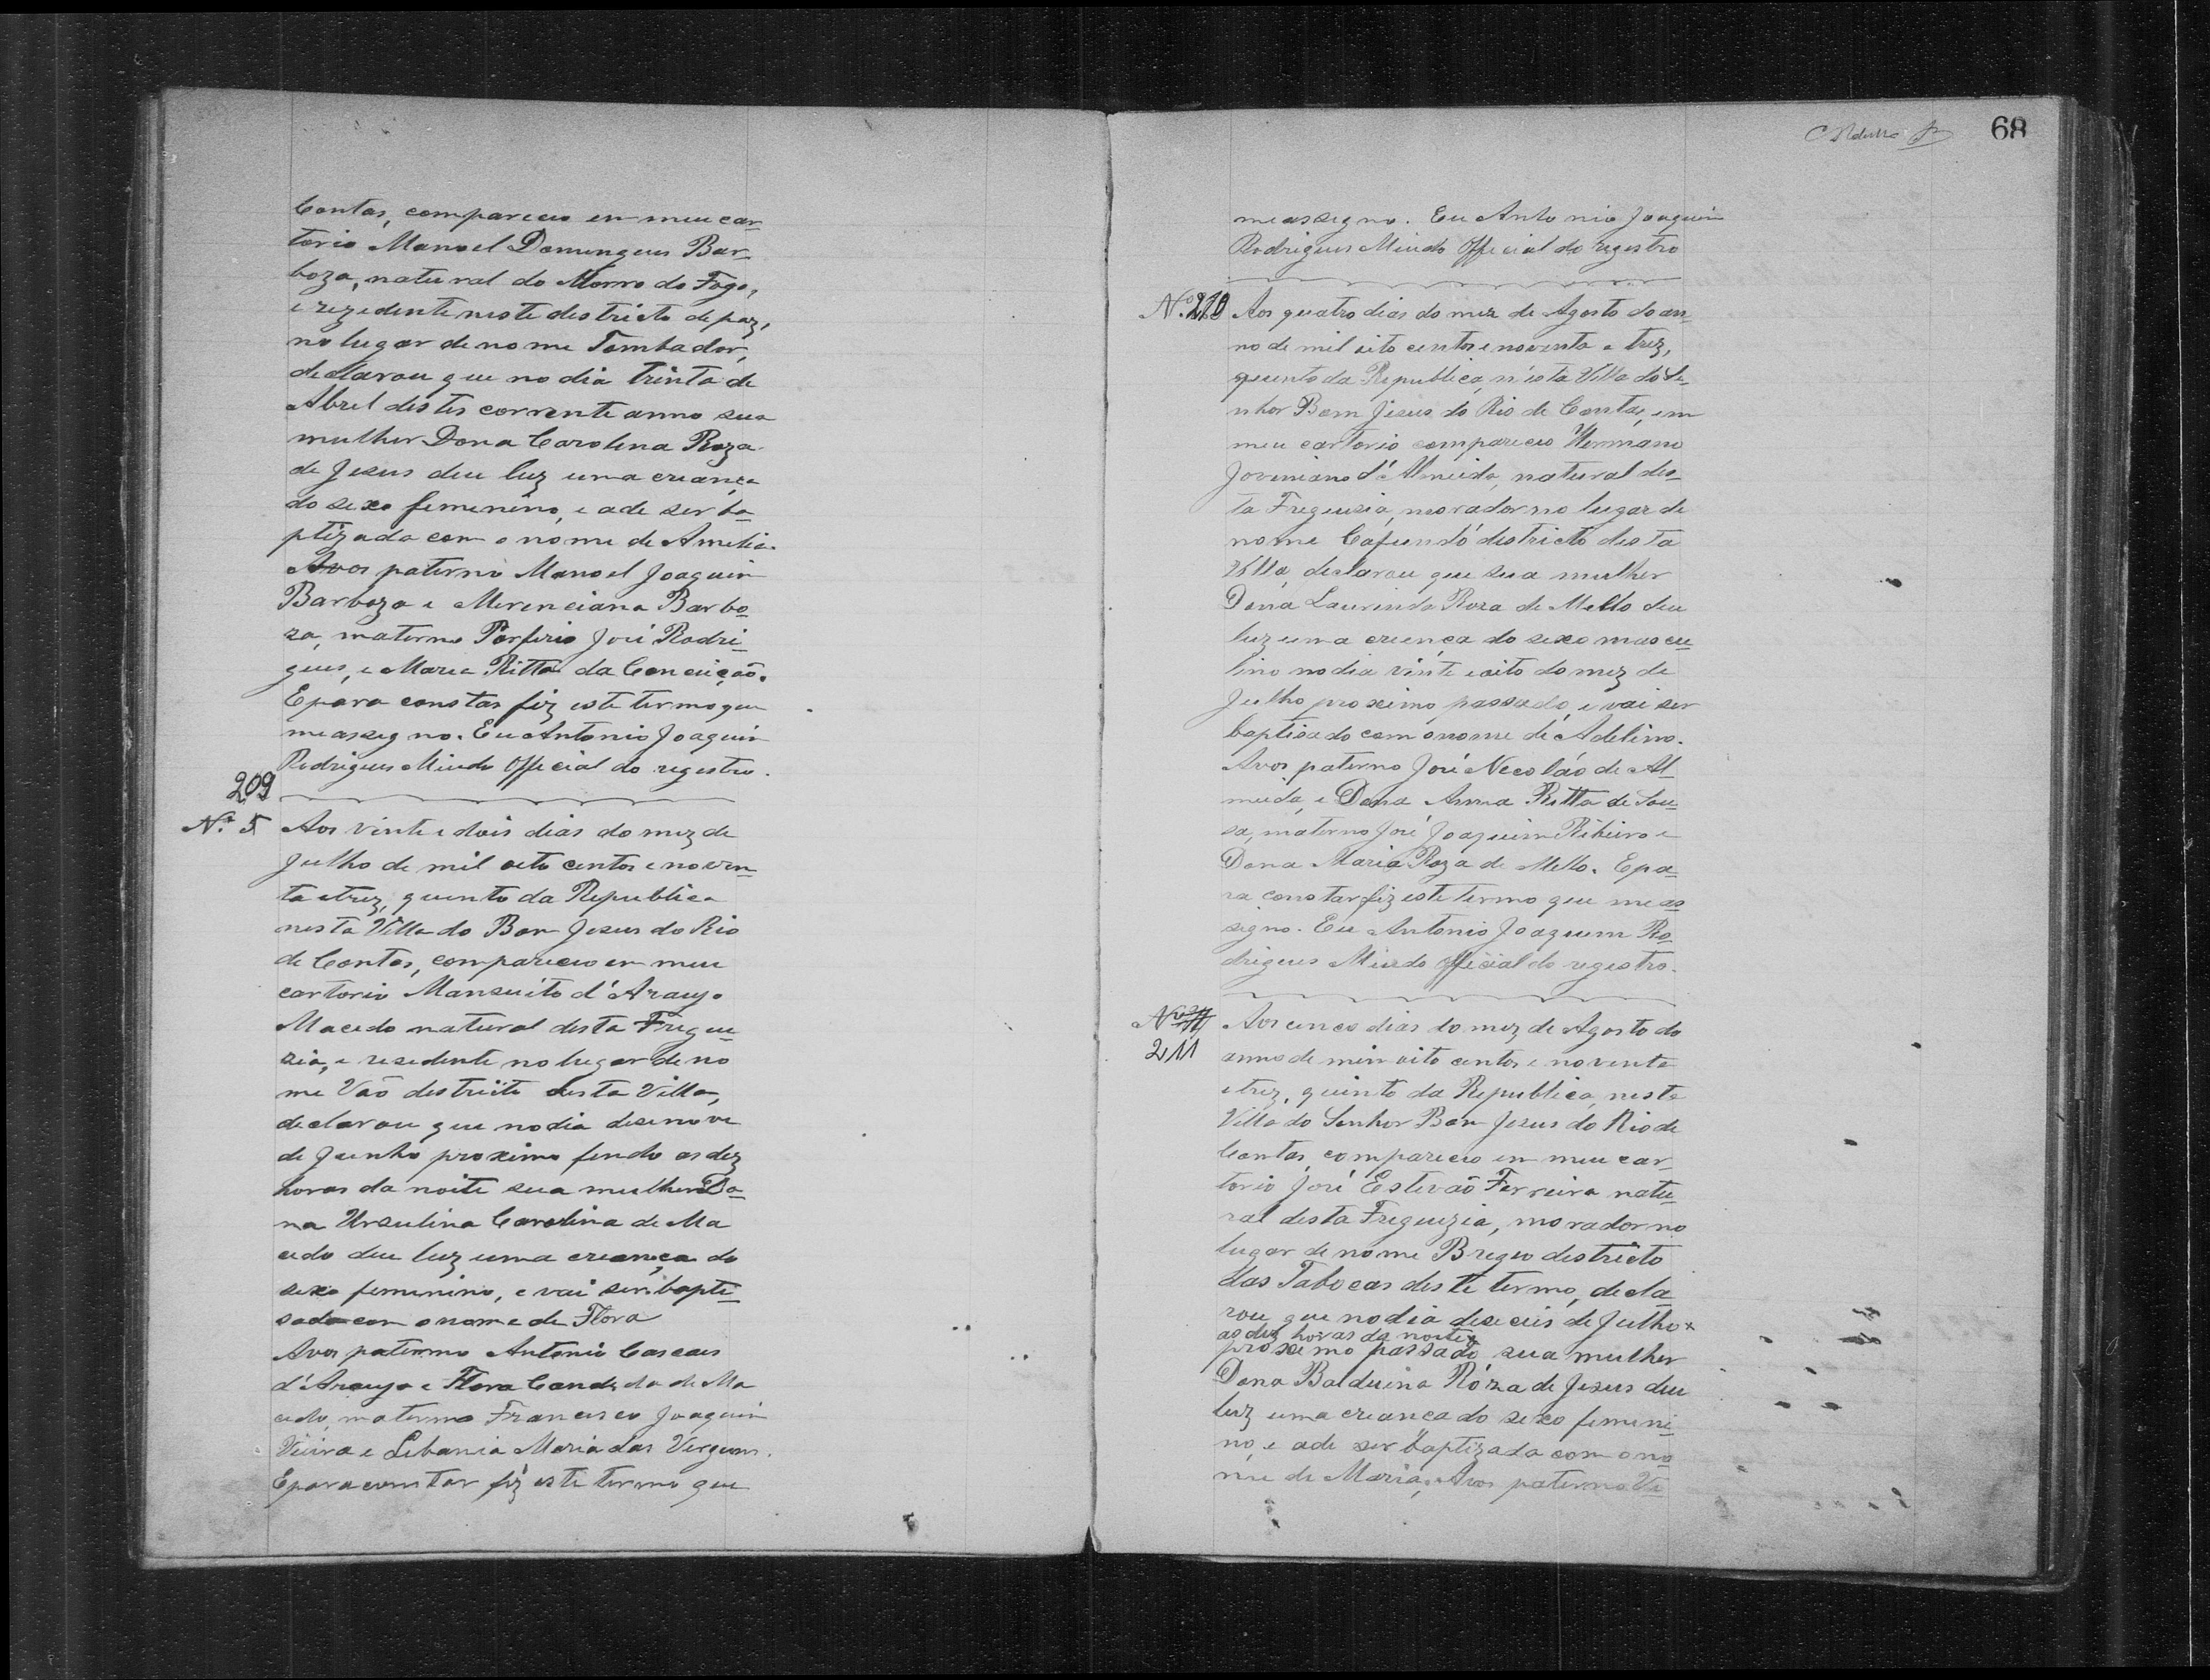 Contas, compareceu em meu car
torio Manoel Domingues Bar
boza, natural do Morro do Fogo,
e rezedente neste destricto de paz,
no lugar de nome Tombador,
declarou que no dia trinta de
Abril destes corrente anno sua
mulher Dona Carolina Roza
de Jesus deu luz uma creança
do sexo femenino, e ade ser ba-
ptizada com o nome de Amelia.
Avos paterno Manoel Joaquim
Barboza e Merenciana Barbo
za, materno Porferio José Rodri-
gues, e Maria Ritta da Conceição.
E para constar fiz este termo que
me assegno. Eu Antonio Joaquim
Rodrigues Miudo Official do regestro.
209
Nº 5 Aos vinte e dois dias do mez de
Julho de mil oito centos e noven-
ta e trez, quinto da Republica
nesta Villa do Bom Jesus do Rio
de Contas, compareceu em meu
cartorio Mansuito d'Araujo
Macedo natural desta Fregue-
zia, e resedente no lugar de no
me Vaõ destricto desta Villa,
declarou que no dia desenove
de Junho proximo findo as dez
horas da noite sua mulher Do-
na Ursulina Carolina de Ma
cedo deu luz uma creança do
sexo femenino, e vai ser bapti-
sada com o nome de Flora
Avos paterno Antonio Cascaes
d'Araujo e Flora Candida de Ma
cedo, materno Francisco Joaquim
Vieira e Libania Maria das Vergens.
E para constar fiz este termo que
68
me assegno. Eu Antonio Joaquim
Rodrigues Miudo Official do regestro
Nº 210 Aos quatro dias do mez de Agosto do an-
no de mil oito centos e noventa e trez,
quinto da Republica, n'esta Villa do Se-
nhor Bom Jesus do Rio de Contas, em
meu cartorio compareceu Hermano
Joveniano d'Almeida, natural des-
ta Freguesia, morador no lugar de
nome Cafundó destricto desta
Villa, declarou que sua mulher
Dona Laurinda Roza de Mello deu
luz uma creança do sexo mascu-
lino no dia vinte e oito do mez de
Julho proximo passado, e vai ser
baptisado com o nome de Adelino.
Avos paterno José Necoláo de Al-
meida, e Dona Anna Ritta de Sou-
sa, materno José Joaquim Ribeiro e
Dona Maria Roza de Mello. E pa-
ra constar fiz este termo que me as-
signo. Eu Antonio Joaquim Ro-
drigues Miudo official do regestro.
211 Aos cinco dias do mez de Agosto do
anno de min oito centos e noventa
e trez, quinto da Republica, nesta
Villa do Senhor Bom Jesus do Rio de
Contas, compareceu em meu car-
torio José Estevaõ Ferreira natu-
ral desta Freguezia, morador no
lugar de nome Brejo destricto
das Tabocas deste termo, decla-
rou que no dia deseceis de Julho x
as dez horas da noite x
proximo passado sua mulher
Dona Balduina Roza de Jesus deu
luz uma creança do sexo femeni-
no, e ade ser baptizada com o no-
me de Maria, Avos paterno Vi-